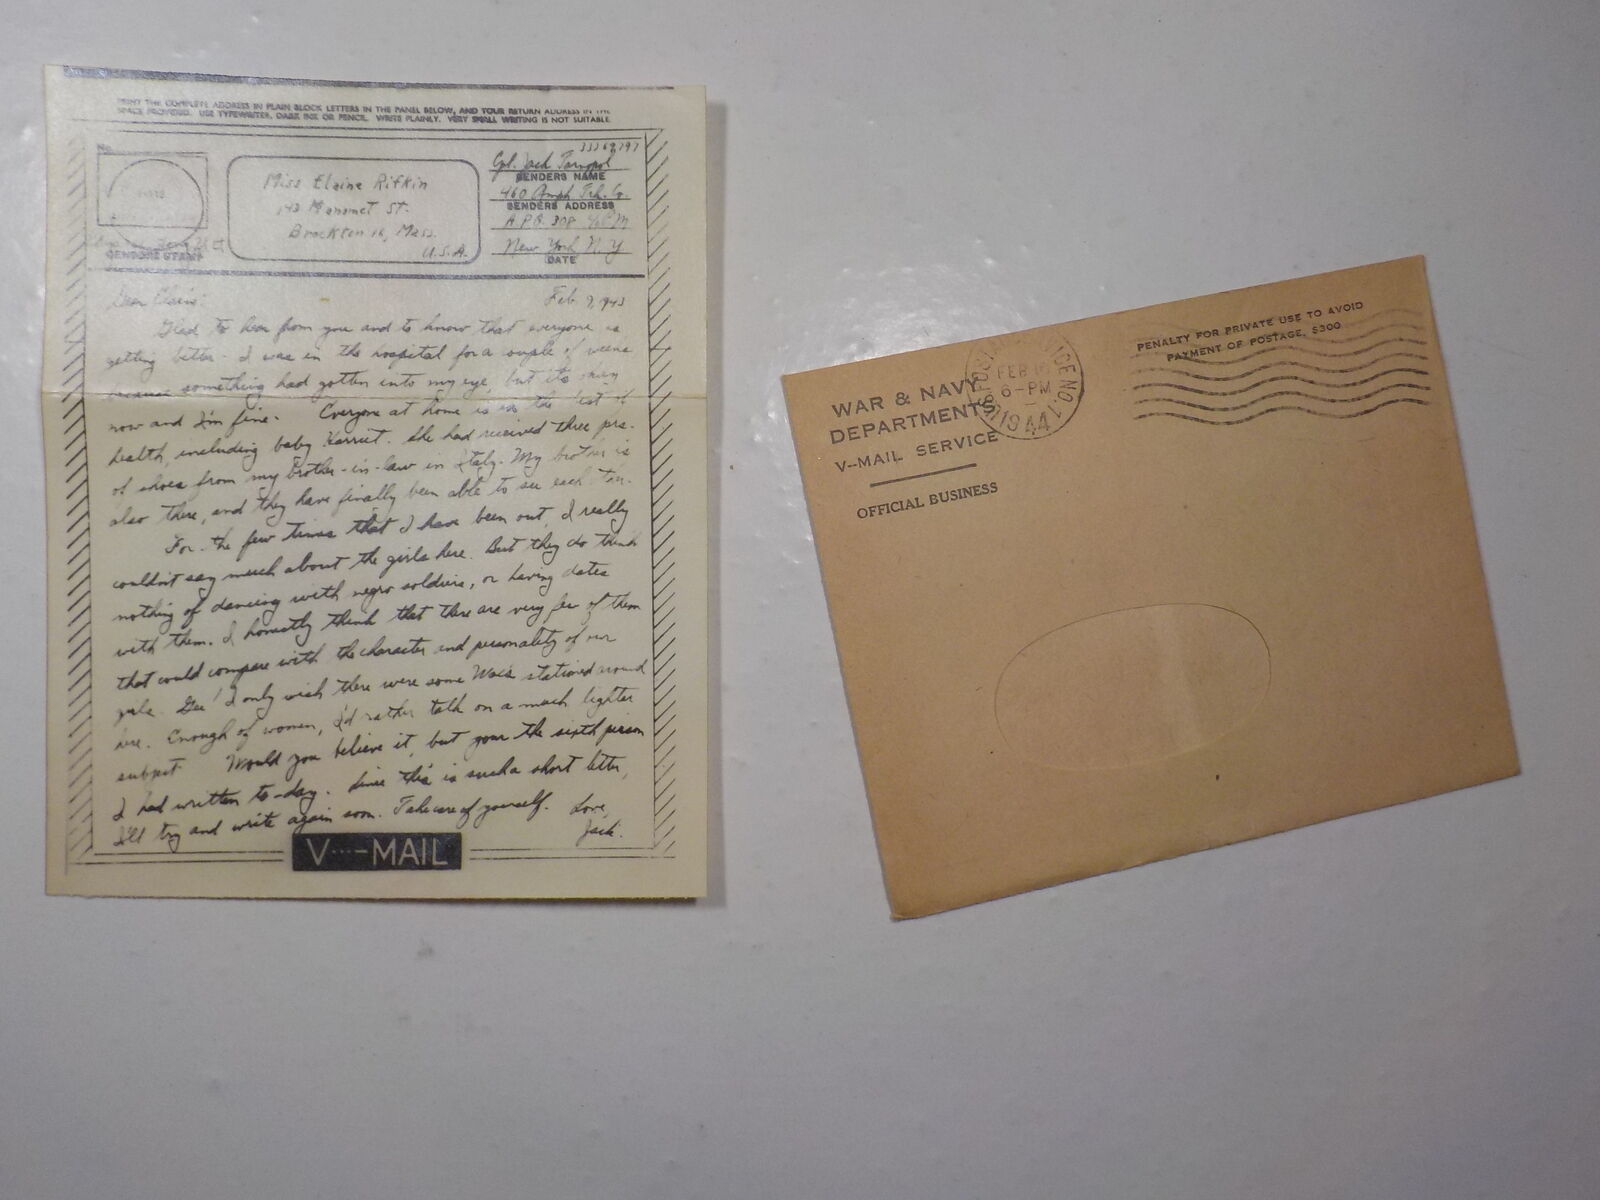 PRINT THE COMPLETE ADDRESS IN PLAIN BLOCK LETTERS IN THE PANEL BELOW, AND YOUR RETURN ADDRESS IN THE
SPACE PROVIDED. USE TYPEWRITER, DARK INK OR PENCIL. WRITE PLAINLY. VERY SMALL WRITING IS NOT SUITABLE.
No.
CENSORS STAMP
Miss Elaine Rifkin
143 Manomet St.
Brockton 16, Mass.
U.S.A.
Cpl. Jack Tarnopol
SENDERS NAME
460 Amph Trk. Co.
SENDERS ADDRESS
A.P.O. 308 % P.M
New York N.Y
DATE
Feb. 9, 1943
Dear Elaine:
Glad to hear from you and to know that everyone is
getting better. I was in the hospital for a couple of weeks
because something had gotten into my eye, but its okay
now and I'm fine. Everyone at home is in the best of
health, including baby Harriet. She had received three prs.
of shoes from my brother-in-law in Italy. My brother is
also there, and they have finally been able to see each other.
For the few times that I have been out, I really
couldn't say much about the girls here. But they do think
nothing of dancing with negro soldiers, or having dates
with them. I honestly think that there are very few of them
that could compare with the character and personality of our
girls. Gee! I only wish there were some Wacs stationed around
here. Enough of women, I'd rather talk on a much lighter
subject. Would you believe it, but your the sixth person
I had written to-day. Since this is such a short letter,
I'll try and write again soon. Take care of yourself. Love,
Jack.
V----MAIL
WAR & NAVY
DEPARTMENTS
V--MAIL SERVICE
OFFICIAL BUSINESS
FEB
6-PM
1944
NO. 1
PENALTY FOR PRIVATE USE TO AVOID
PAYMENT OF POSTAGE, $300